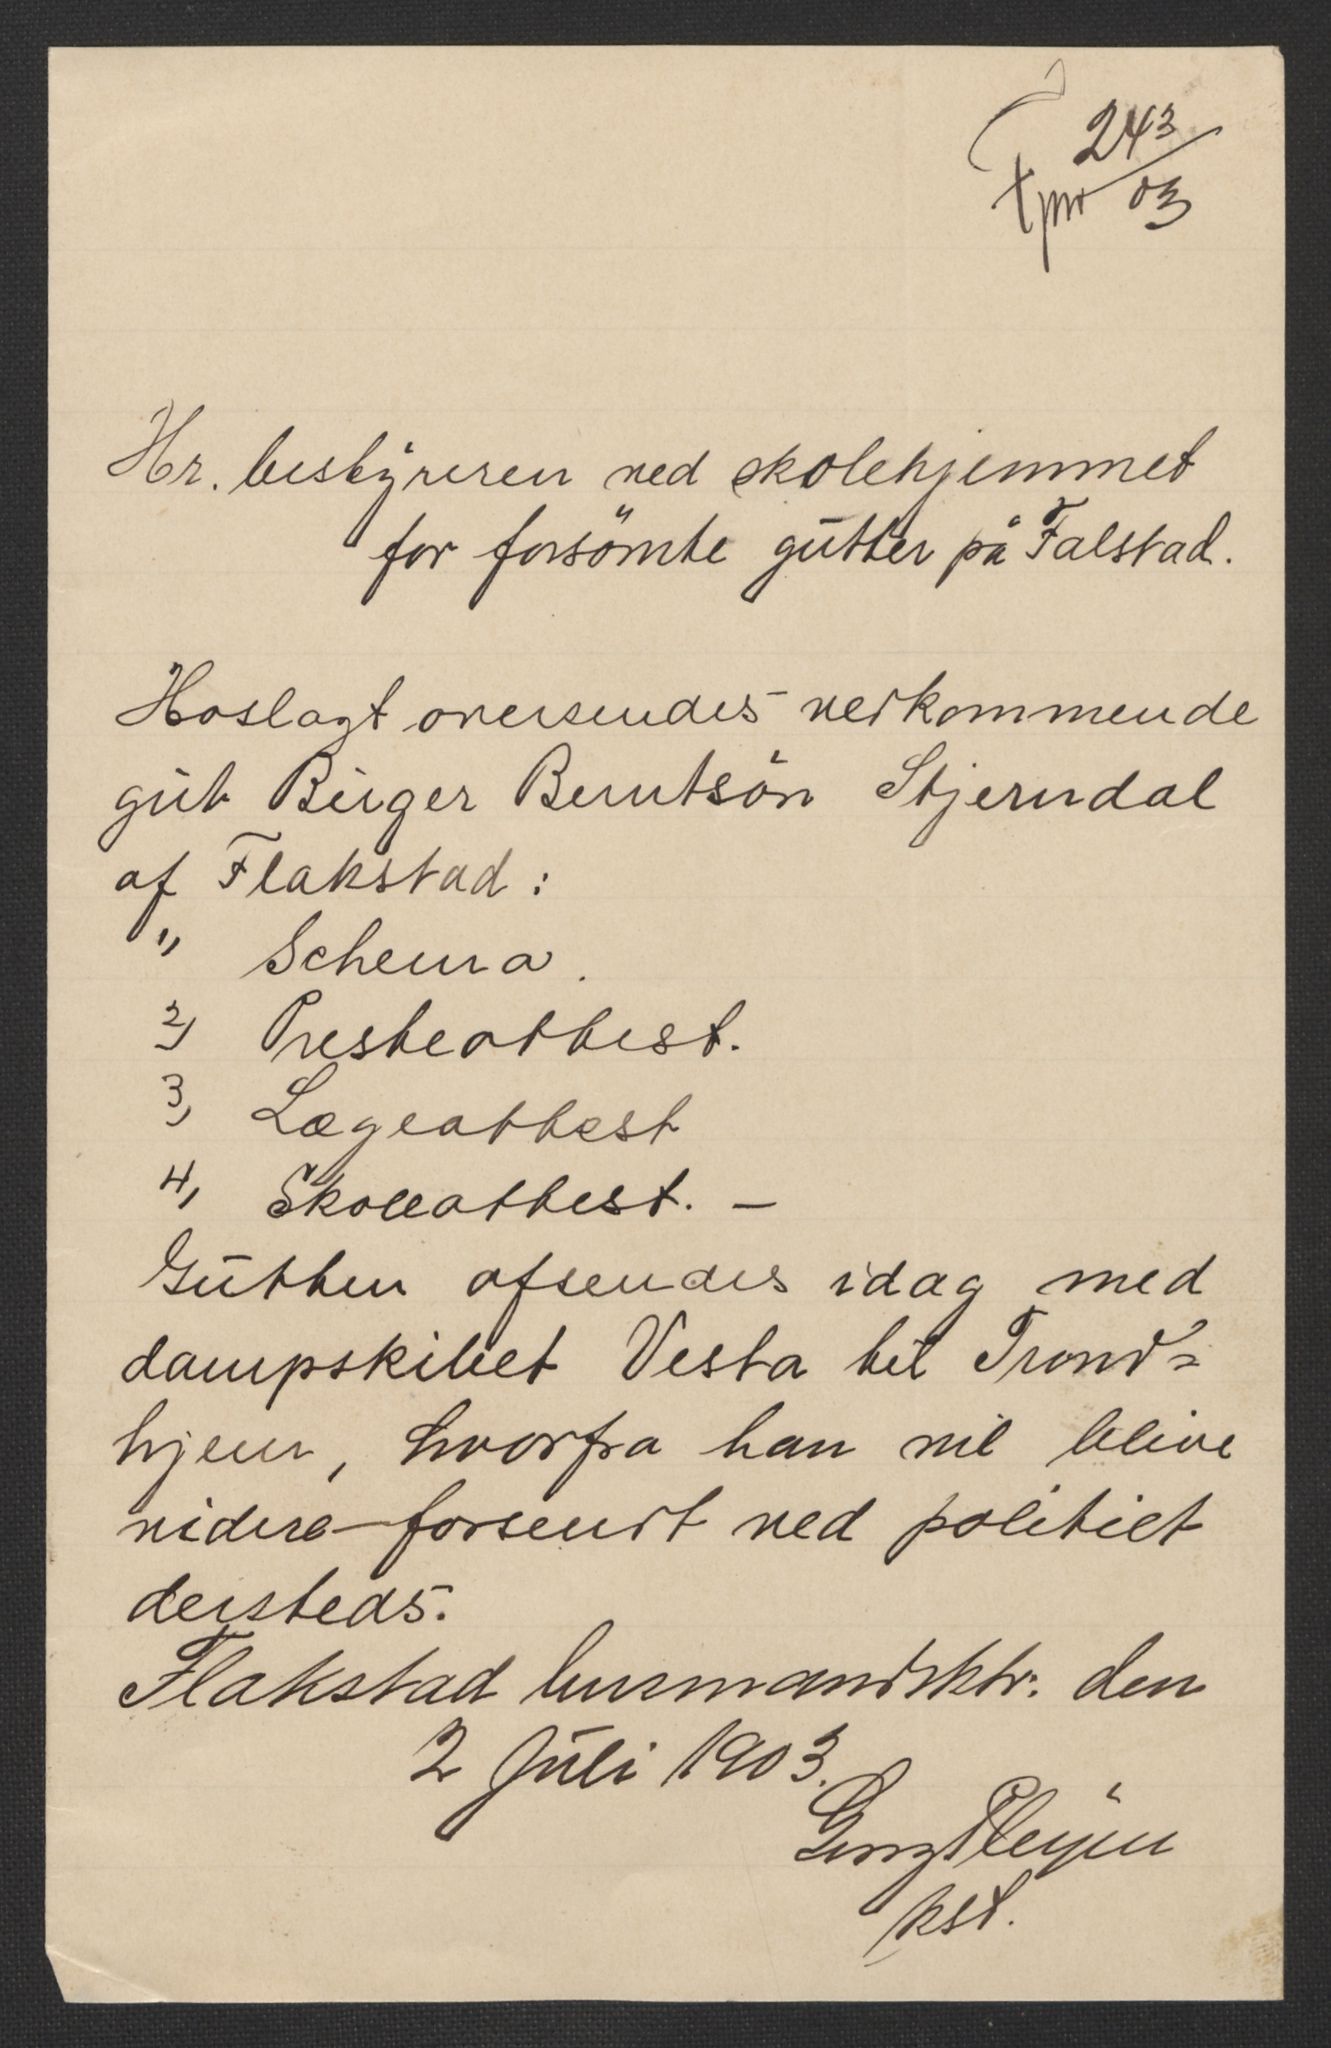 243
03
Hr. bestyreren ved skolehjemmet
for forsömte gutter på Falstad.
Hoslagt oversendes vedkommende
gut Birger Berntsön Stjerndal
af Flakstad:
1) Schema.
2) Presteattest.
3) Lægeattest
4) Skoleattest. —
Gutten afsendes idag med
dampskibet Vesta til Trond=
hjem, hvorfra han vil blive
videre forsendt ved politiet
dersteds.
Flakstad lensmandsktr. den
2 Juli 1903.
kst.